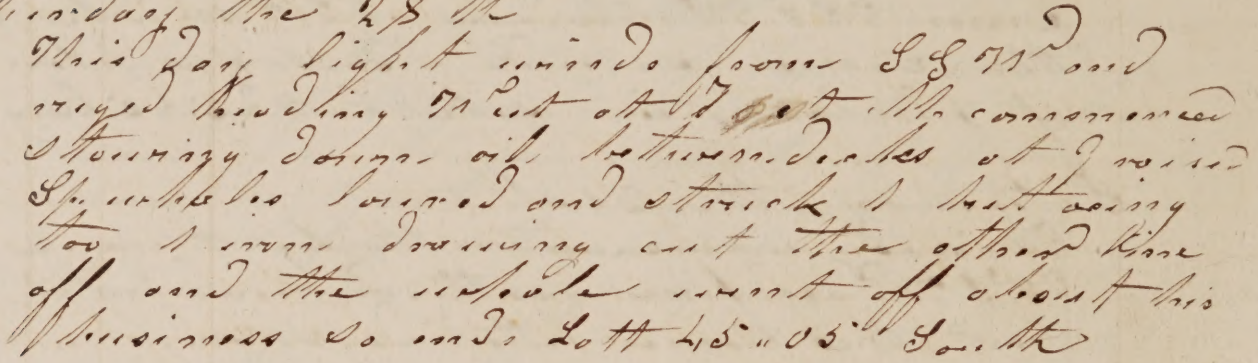 the 28 th
This Day light winds from S S W and
ruged heading West at 7 at 11 h commenced
stowing down oil between decks at 9 raised
Sp whales lowred and struck 1 but owing
too 1 iron drawing cut the other line
off and the whale went off about his
business so ends Latt 45 " 05 South